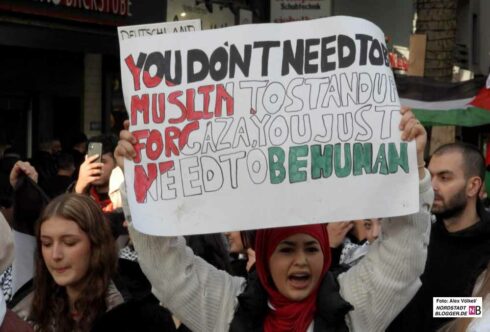 BACKSTUBE
Schuhtechnik
DEUTSCHLAND
YOU DON'T NEED TO BE
MUSLIM TO STAND UP
FOR GAZA, YOU JUST
NEED TO BE HUMAN
Foto: Alex Völkel
NORDSTADT
BLOGGER.DE
NB